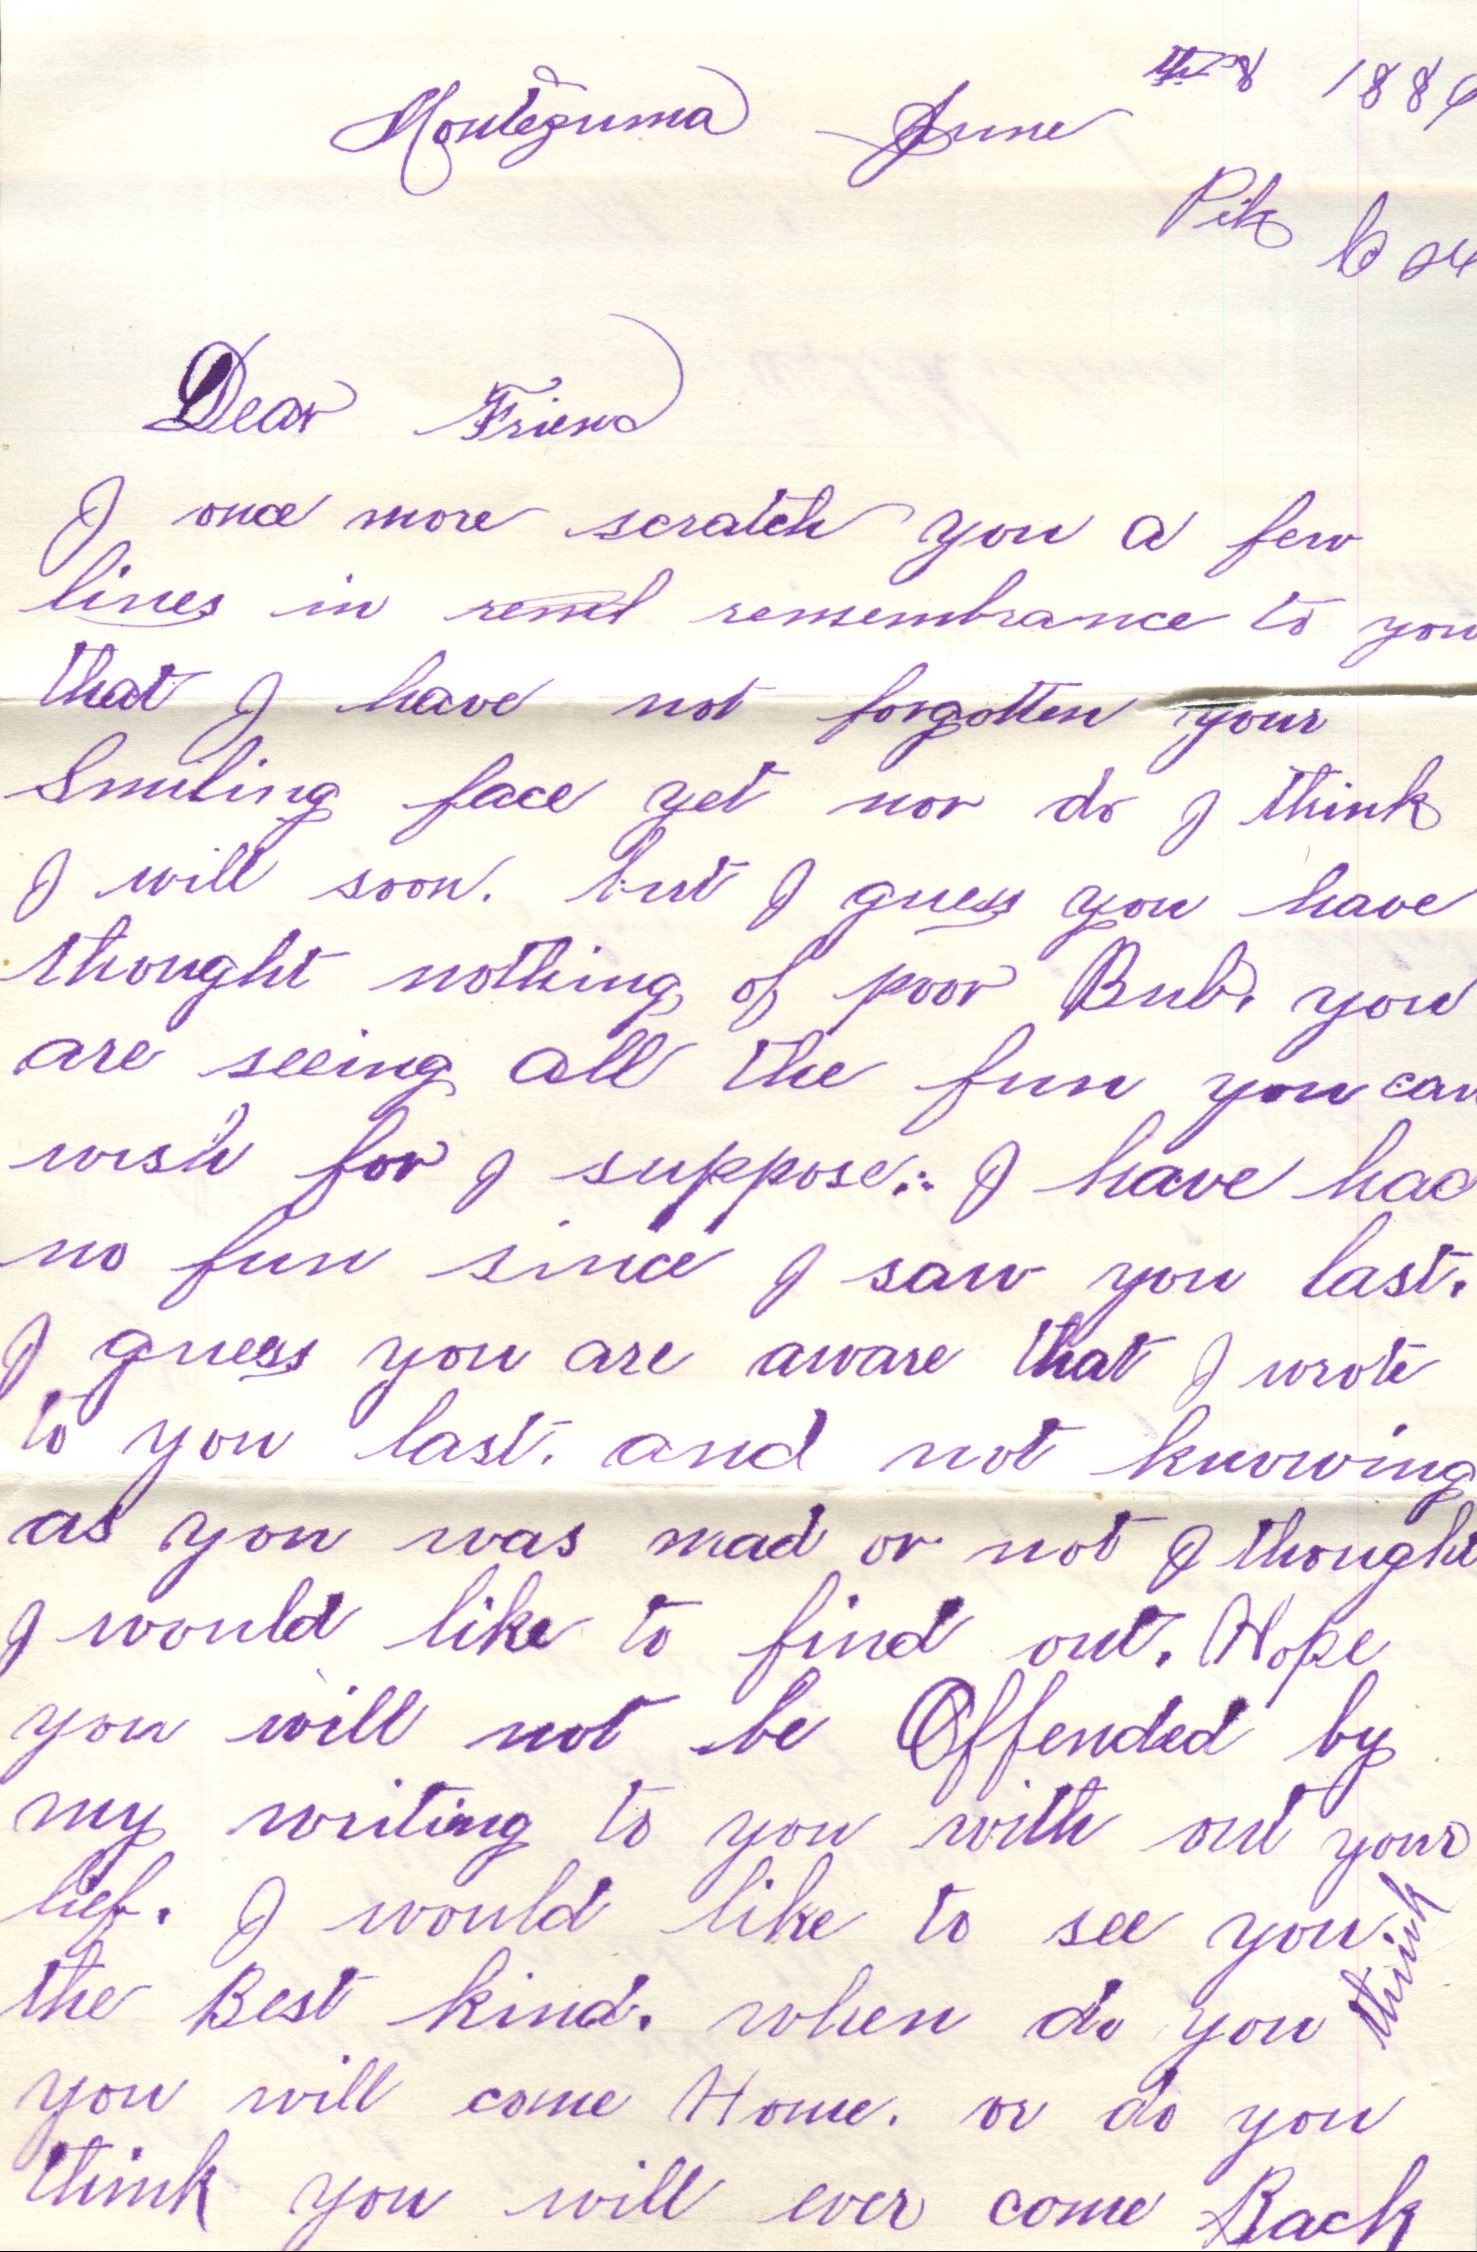 Montezuma June th 8 1886
Pik Co
Dear Friend
I once more scratch you a few
lines in remembrance to you
that I have not forgotten your
Smiling face yet nor do I think
I will soon. but I guess you have
thought nothing of poor Bub. you
are seeing all the fun you can
wish for I suppose. I have had
no fun since I saw you last.
I guess you are aware that I wrote
to you last. and not knowing
as you was mad or not I thought
I would like to find out. Hope
you will not be Offended by
my writing to you with out your
lief. I would like to see you.
the Best kind. when do you think
you will come Home. or do you
think you will ever come Back